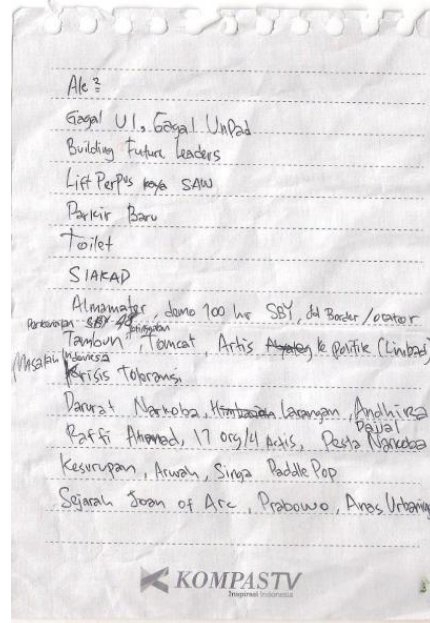 Ale?
Gagal UI, Gagal UnPad
Building Future Leaders
Lift Perpus kaya SAW
Parkir Baru
Toilet
SIAKAD
Almamater, demo 100 hr SBY, dd Border / orator
Tambun, Tomcat, Artis ke politik (Limbad)
Masalah Indonesia
Krisis toleransi
Darurat Narkoba, Larangan, Andhika
Raffi Ahmad, 17 org/4 Artis, Pesta Narkoba
Kesurupan, Arwah, Singa Paddle Pop
Sejarah Joan of Arc, Prabowo, Anas Urbaning
KOMPASTV
Inspirasi Indonesia